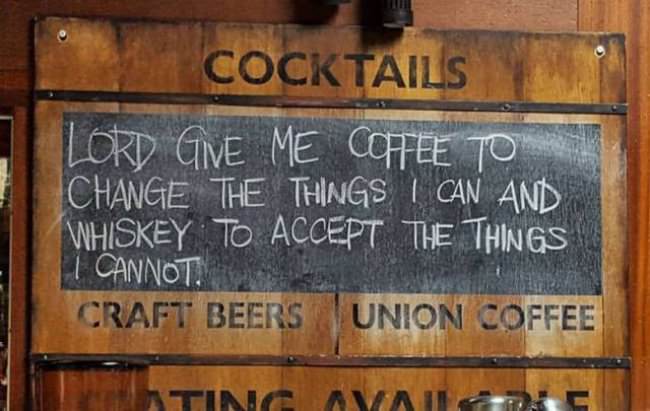 COCKTAILS
LORD GIVE ME COFFEE TO
CHANGE THE THINGS I CAN AND
WHISKEY TO ACCEPT THE THINGS
I CANNOT.
CRAFT BEERS UNION COFFEE